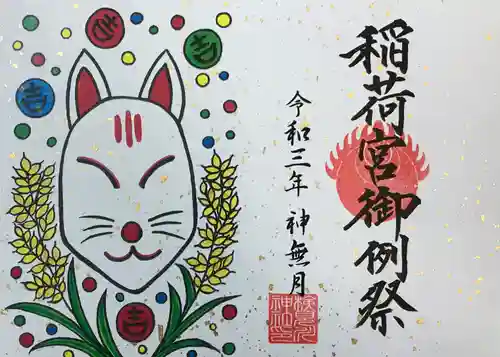 稲荷宮御例祭
令和三年 神無月
吉
吉
吉
吉